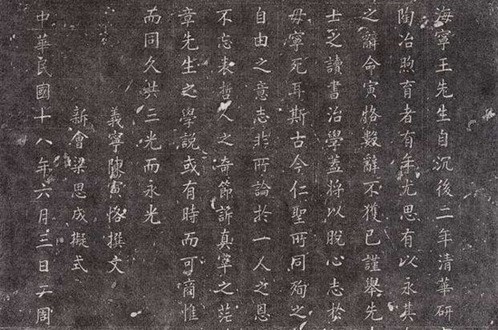 海寧王先生自沉後二年清華研
陶冶煦育者有年尤思有以永其
之辭命寅恪數辭不獲已謹舉先
士之讀書治學蓋將以脫心志於
毋寧死耳斯古今仁聖所同殉之
自由之意志非所論於一人之恩
不忘表哲人之奇節訴真宰之茫
章先生之學說或有時而可商惟
而同久共三光而永光
義寧陳寅恪撰文
新會梁思成擬式
中華民國十八年六月三日二周